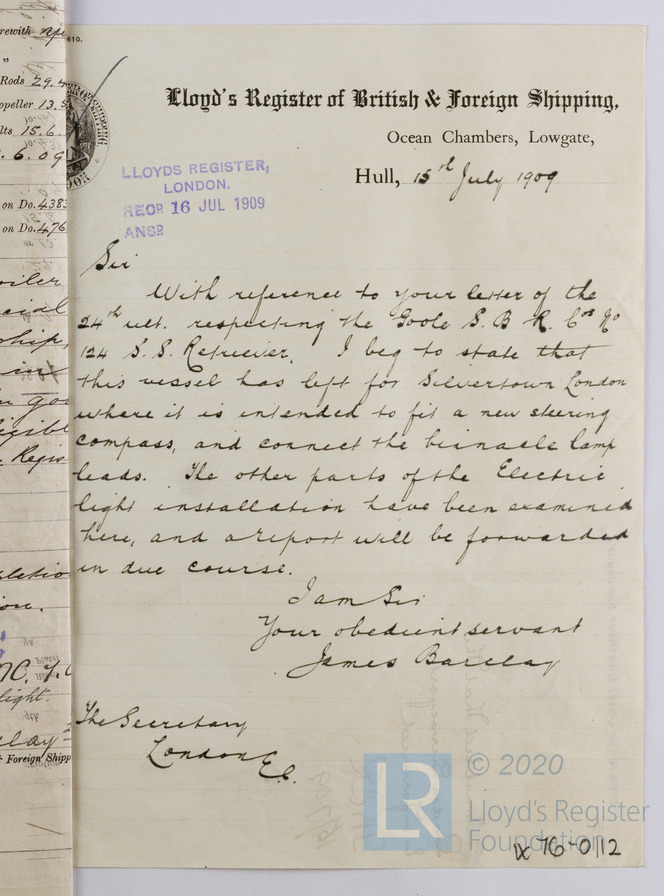 610.
Lloyd's Register of British & Foreign Shipping,
Ocean Chambers, Lowgate,
Hull, 15th July 1909
LLOYDS REGISTER,
LONDON.
RECD. 16 JUL 1909
ANSD.
Sir
With reference to your letter of the
24th ult. respecting the Goole S. B & R. Cos No
124 S. S. Retriever, I beg to state that
this vessel has left for Silvertown London
where it is intended to fit a new steering
compass, and connect the binnacle lamp
leads. The other parts of the Electric
light installation have been examined
here, and a report will be forwarded
in due course.
I am Sir
Your obedient servant
James Barclay
The Secretary
London E.C.
rewith
Rods 29.4
opeller 13.5
lts 15.6.
6.09
on Do. 4383
on Do. 476
oiler
cial
ship,
in
goo
igible
Regis
pletio
ion.
light.
clay
Foreign Shipp
LR
© 2020
Lloyd's Register
Foundation
IX 76-0112